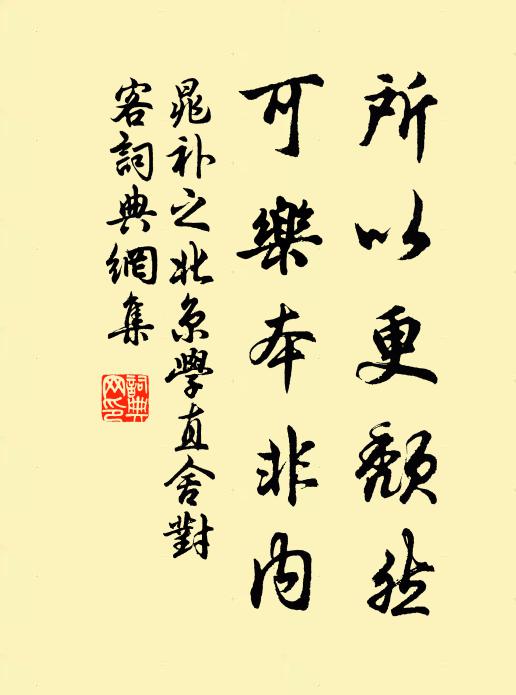 所以更頹然
可樂本非内
晁补之北京學直舍對
客詞典網集
詞典网印